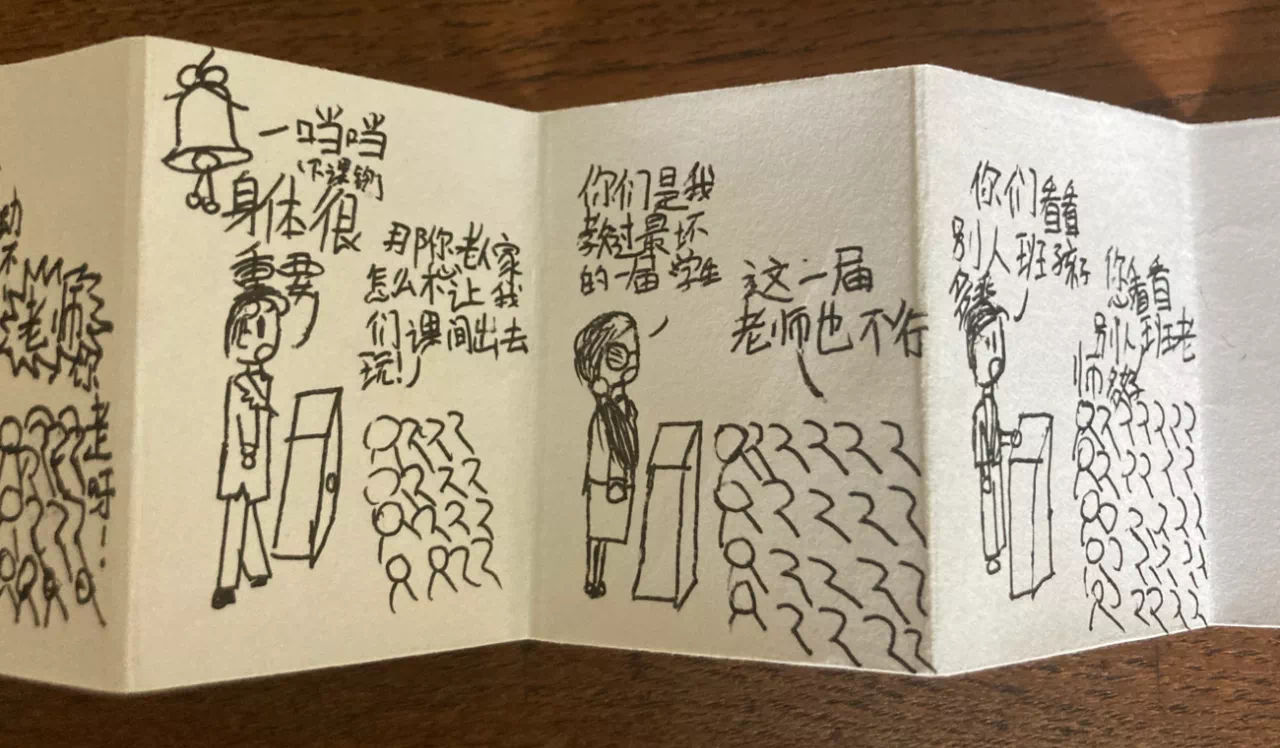 不
老师
你
走呀!
一当当
(下课铃)
身体很
重要
那你老人家
怎么不让我
们课间出去
玩!
你们是我
教过最坏
的一届学生
这一届
老师也不行
你们看看
别人班孩子
多乖
您看看
别人班老
师多好